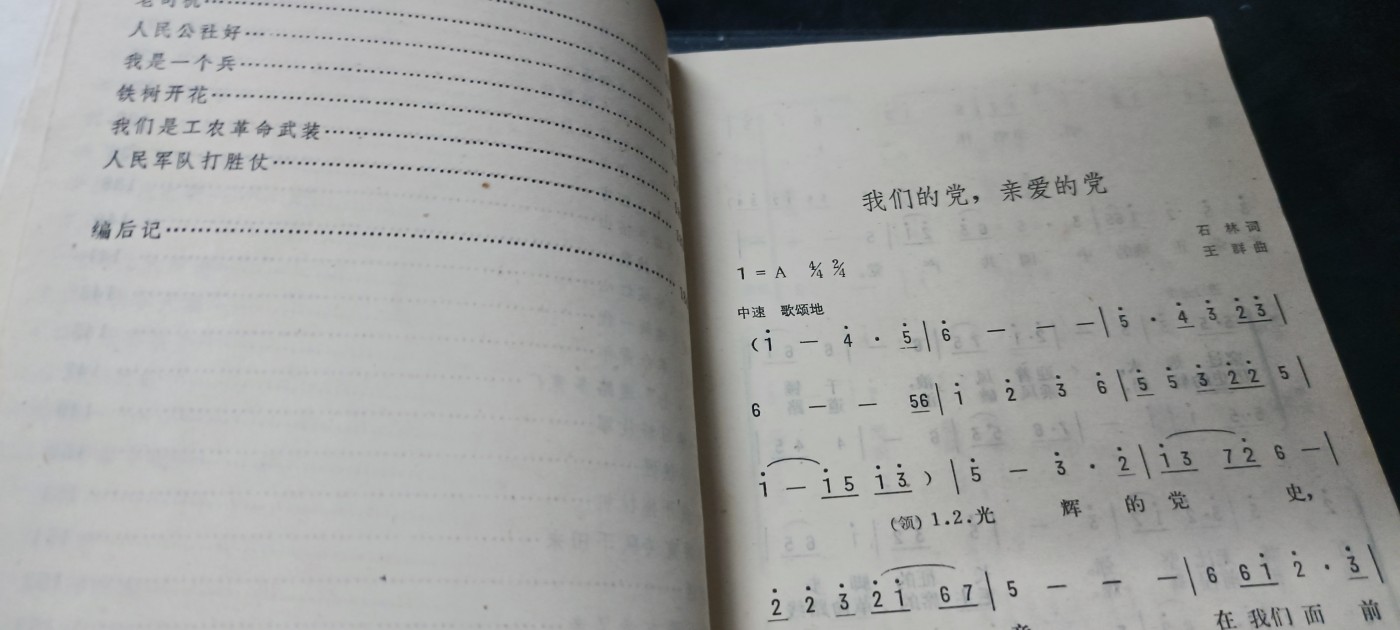 人民公社好
我是一个兵
铁树开花
我们是工农革命武装
人民军队打胜仗
编后记
我们的党，亲爱的党
石 林 词
王 群 曲
1 = A 4/4 2/4
中速 歌颂地
( 1̇ — 4̇ · 5̇ | 6̇ — — — | 5̇ · 4̇ 3̇ 2̇3̇ |
6 — — 56 | 1̇ 2̇ 3̇ 6̇ | 5̇ 5̇ 3̇ 2̇2̇ 5 |
1̇ — 1̇5 1̇3̇ ) | 5̇ — 3̇ · 2̇ | 1̇3 72̇ 6 — |
(领) 1.2.光 辉 的 党 史，
2̇ 2̇ 3̇ 2̇1̇ 67 | 5 — — — | 6 61̇ 2̇ · 3̇ |
在 我们 面 前